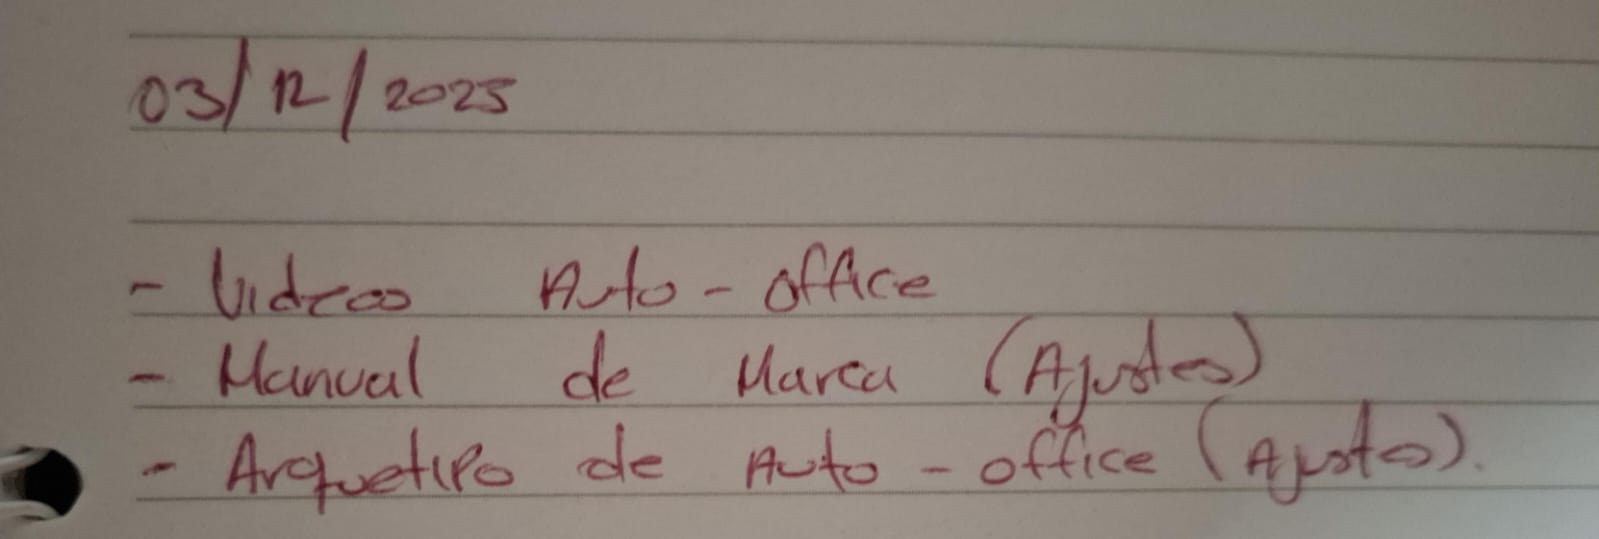 03/12/2025
- Videos Auto-office
- Manual de Marca (Ajustes)
- Arquetipo de Auto-office (Ajustes).